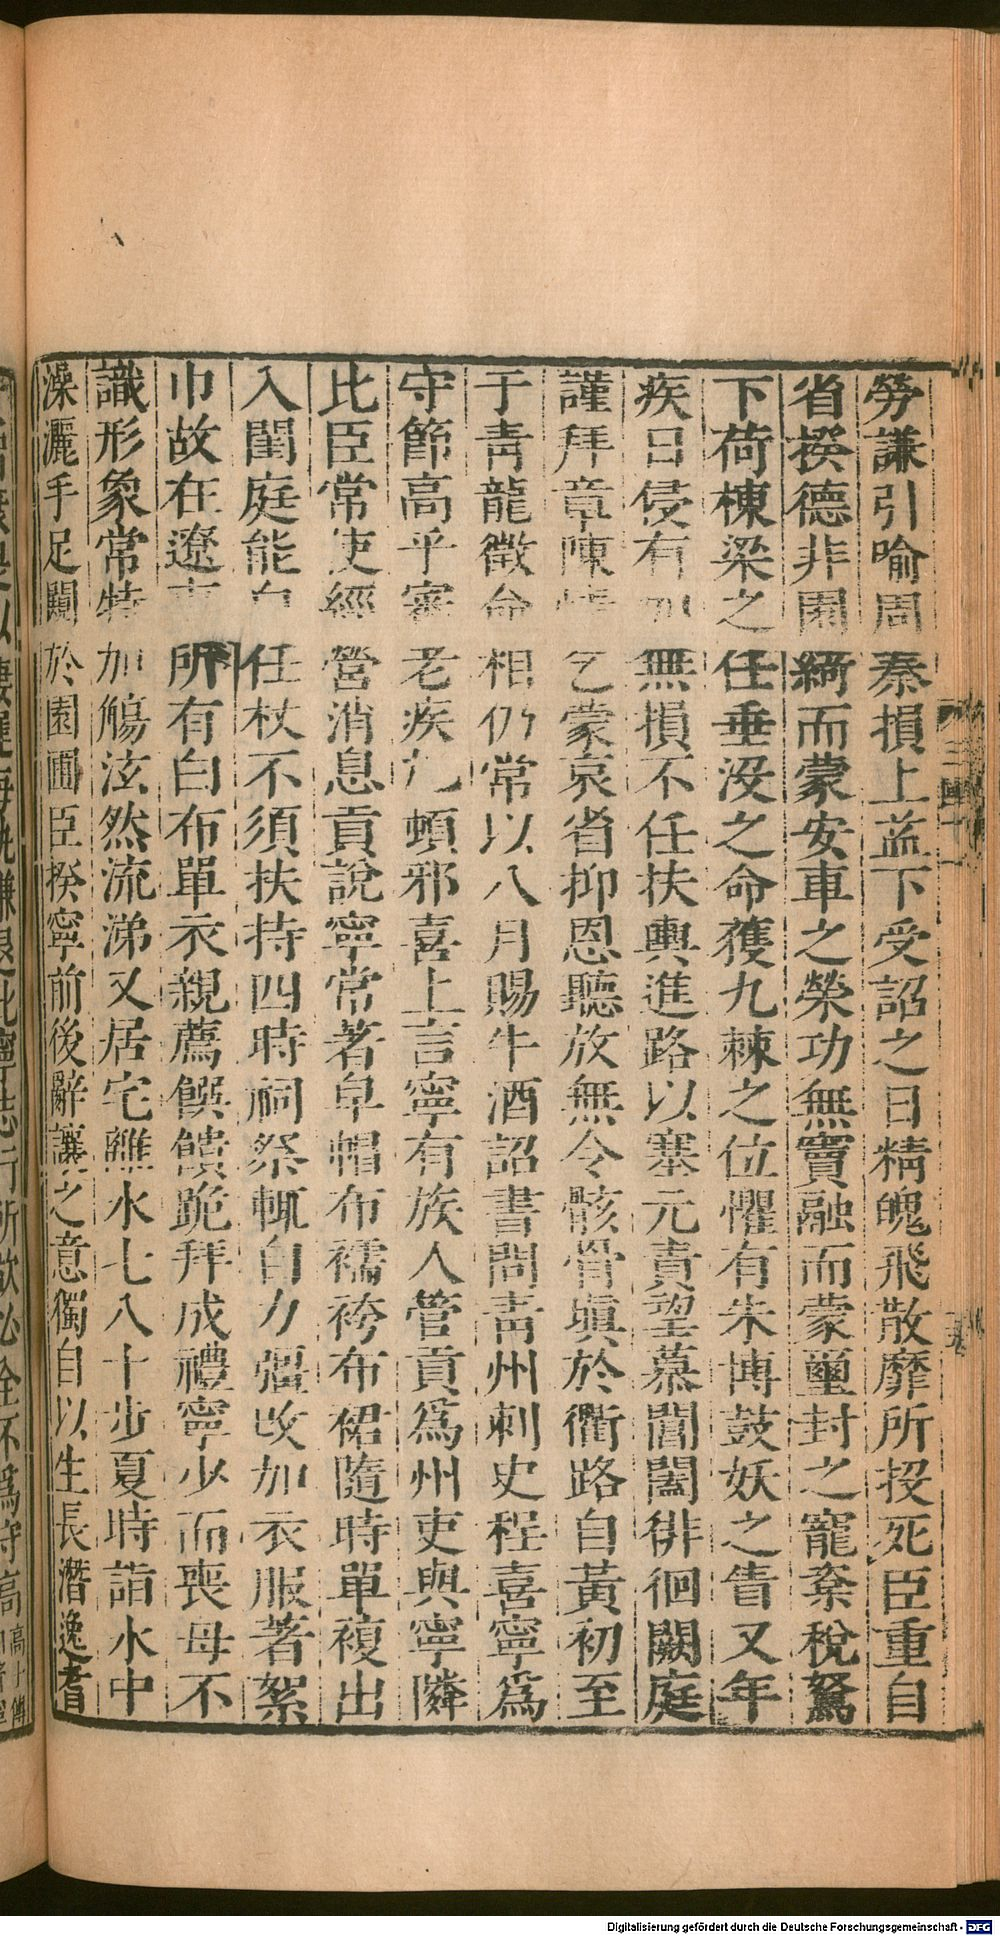 勞謙引喻周秦損上益下受詔之日精魄飛散靡所投死臣重自
省揆德非園綺而蒙安車之榮功無竇融而蒙璽封之寵楶梲駑
下荷棟梁之任垂没之命獲九棘之位懼有朱博鼓妖之眚又年
疾日侵有加無損不任扶輿進路以塞元責望慕閶闔徘徊闕庭
謹拜章陳情乞蒙哀省抑恩聽放無令骸骨塡於衢路自黃初至
于青龍徵命相仍常以八月賜牛酒詔書問青州刺史程喜寧爲
守節高乎審老疾尩頓邪喜上言寧有族人管貢爲州吏與寧隣
比臣常使經營消息貢說寧常著皁帽布襦袴布裙隨時單複出
入閨庭能自任杖不須扶持四時祠祭輒自力彊改加衣服著絮
巾故在遼東所有白布單衣親薦饌饋跪拜成禮寧少而喪母不
識形象常特加觴泫然流涕又居宅離水七八十步夏時詣水中
澡灑手足闚於園圃臣揆寧前後辭讓之意獨自以生長潛逸耆
Digitalisierung gefördert durch die Deutsche Forschungsgemeinschaft - DFG